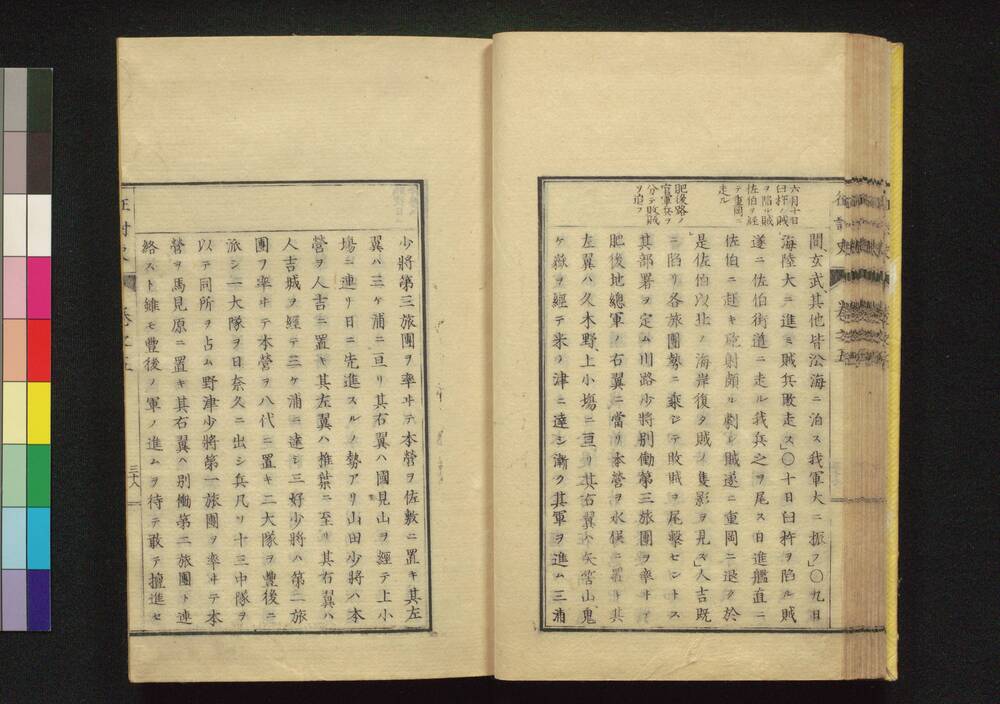 征討史 卷之五
六月十日
臼杵ノ賊
ヲ陷ル賊
佐伯ヲ經
テ重岡ニ
走ル
肥後路ノ
官軍兵ヲ
分テ敗賊
ヲ追フ
間玄武其他皆沿海ニ泊ス我軍大ニ振フ」〇九日
海陸大ニ進ミ賊兵敗走ス」〇十日臼杵ヲ陷ル賊
遂ニ佐伯街道ニ走ル我兵之ヲ尾ス日進艦直ニ
佐伯ニ赴キ砲射頗ル劇シ賊遂ニ重岡ニ退ク於
是佐伯以北ノ海岸復タ賊ノ隻影ヲ見ス」人吉既
ニ陷リ各旅團勢ニ乘シテ敗賊ヲ尾擊セントス
其部署ヲ定ム川路少將別働第三旅團ヲ率ヰテ
肥後地總軍ノ右翼ニ當リ本營ヲ水俣ニ置キ其
左翼ハ久木野上小塲ニ亘リ其右翼ハ矢筈山鬼
ケ嶽ヲ經テ米ノ津ニ達シ漸ク其軍ヲ進ム三浦
少將第三旅團ヲ率ヰテ本營ヲ佐敷ニ置キ其左
翼ハ三ケ浦ニ亘リ其右翼ハ國見山ヲ經テ上小
塲ニ連リ日ニ先進スルノ勢アリ山田少將ハ本
營ヲ人吉ニ置キ其左翼ハ椎葉ニ至リ其右翼ハ
人吉城ヲ經テ三ケ浦ニ達シ三好少將ハ第二旅
團ヲ率ヰテ本營ヲ八代ニ置キ二大隊ヲ豐後ニ
派シ一大隊ヲ日奈久ニ出シ兵凡ソ十三中隊ヲ
以テ同所ヲ占ム野津少將第一旅團ヲ率ヰテ本
營ヲ馬見原ニ置キ其右翼ハ別働第二旅團ト連
絡スト雖モ豐後ノ軍ノ進ムヲ待テ敢テ擅進セ
征討史 卷之五
三十八